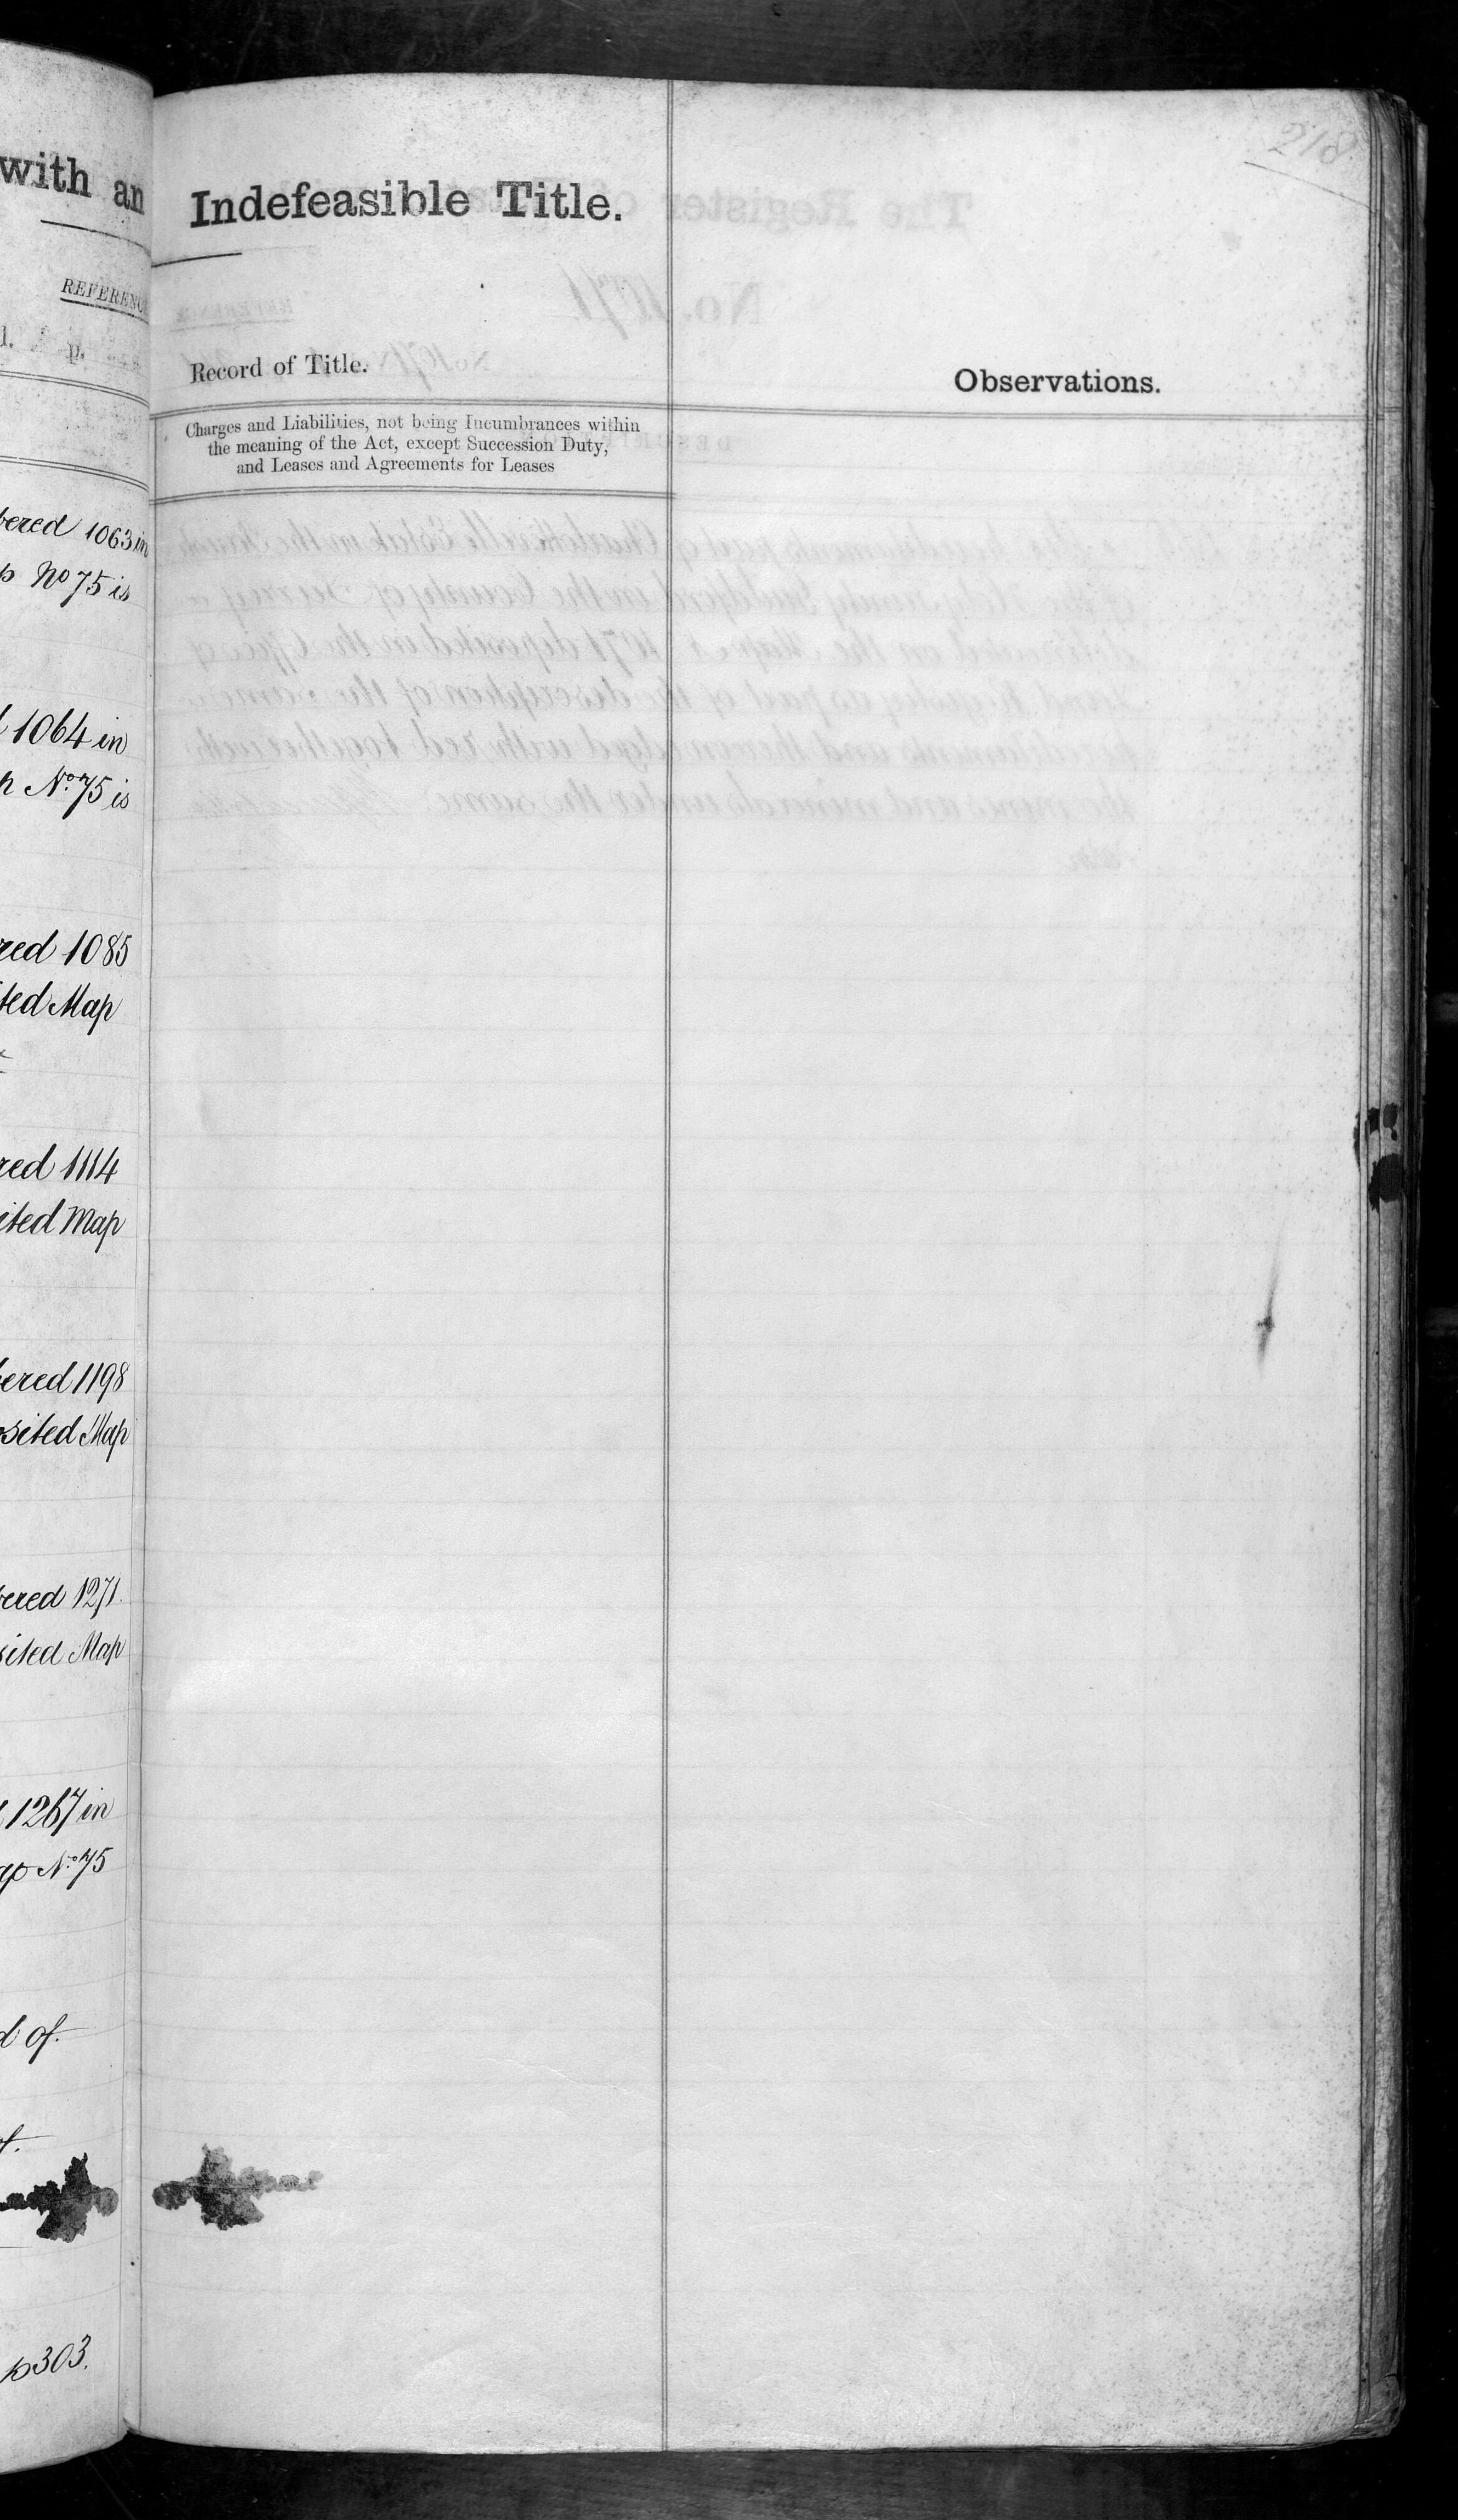 with an
REFERENC
p.
bered 1063 in
p No 75 is
1064 in
p No. 75 is
red 1085
ited Map
red 1114
ited Map
bered 1198
osited Map
bered 1271.
sited Map
1267 in
ap No. 75
d of.
p 303.
218
Indefeasible Title.
Record of Title.
Observations.
Charges and Liabilities, not being Incumbrances within
the meaning of the Act, except Succession Duty,
and Leases and Agreements for Leases